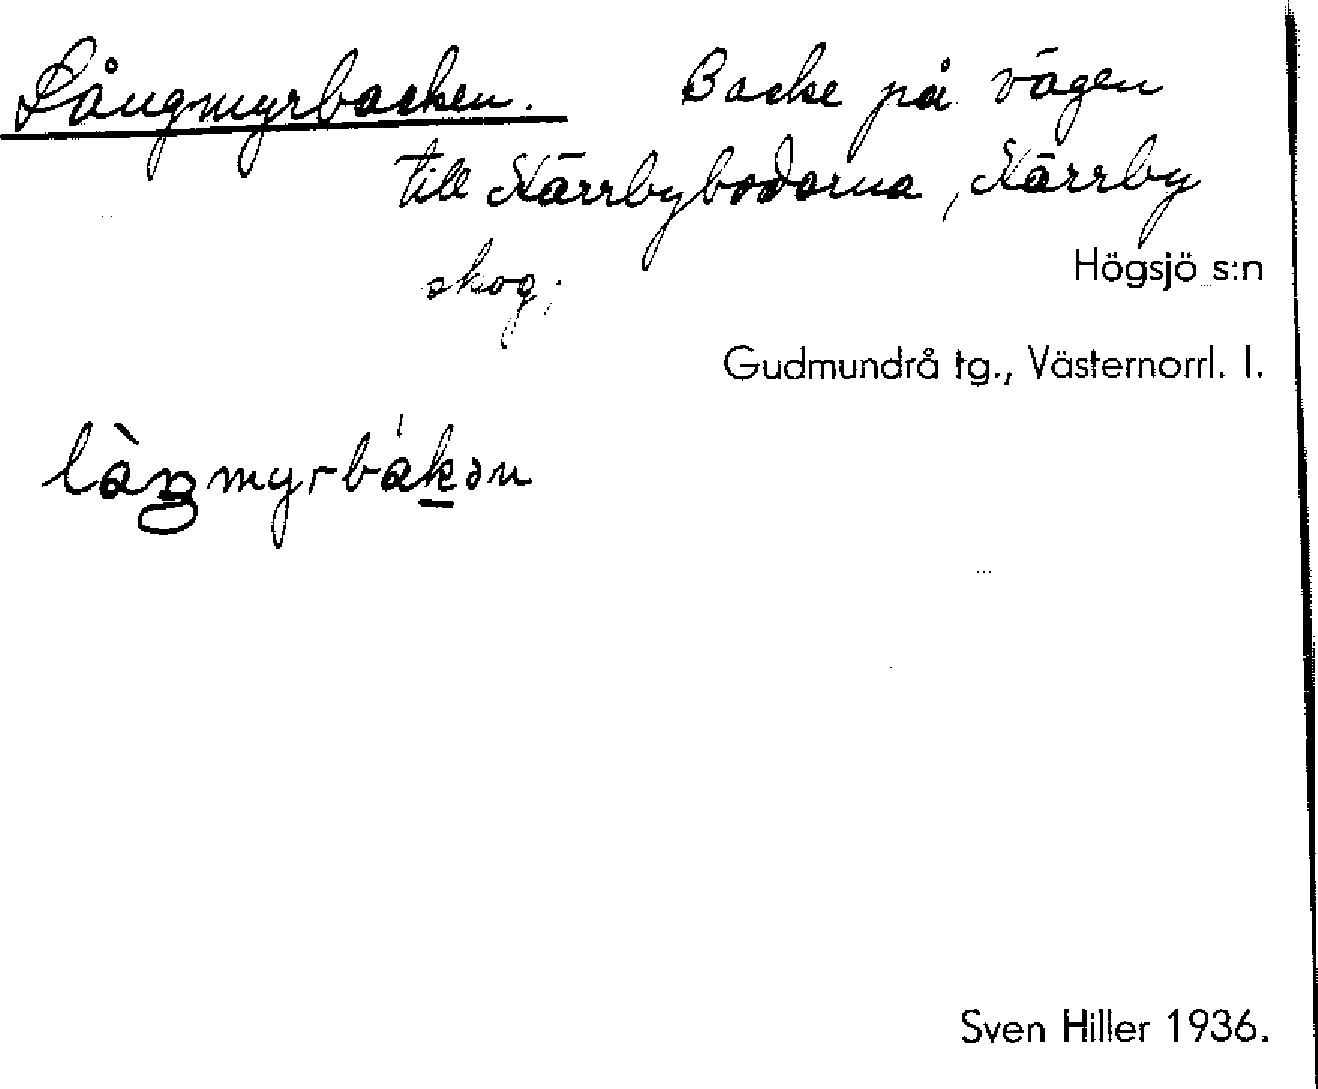 Långmyrbacken. Backe på vägen
till Kärrbybodarna, Kärrby
skog.
Högsjö s:n
Gudmundrå tg., Västernorrl. l.
Sven Hiller 1936.